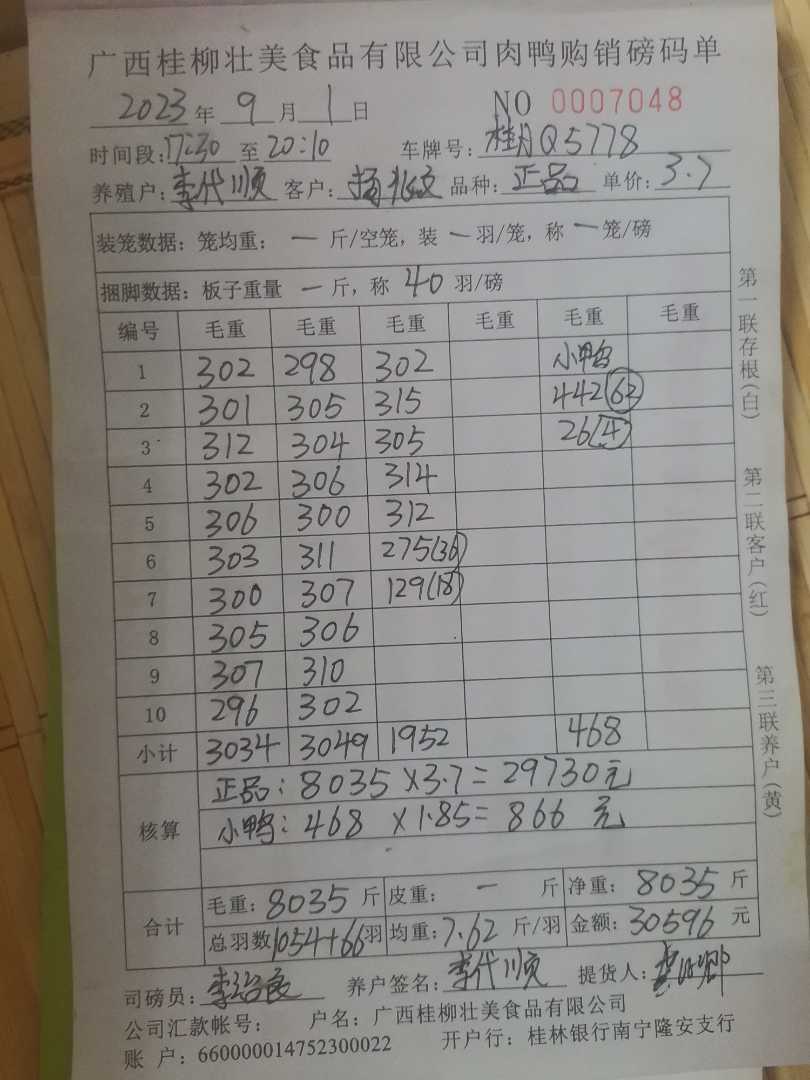 广西桂柳壮美食品有限公司肉鸭购销磅码单
2023年 9月 1日 NO 0007048
时间段:17:30 至 20:10 车牌号: 桂AQ5778
养殖户: 李代顺 客户: 杨兆文 品种: 正品 单价: 3.7
装笼数据: 笼均重: 一 斤/空笼, 装 一 羽/笼, 称 一 笼/磅
捆脚数据: 板子重量 一 斤, 称 40 羽/磅
编号 毛重 毛重 毛重 毛重 毛重 毛重
1 302 298 302 小鸭
2 301 305 315 442(62)
3 312 304 305 26(4)
4 302 306 314
5 306 300 312
6 303 311 275(36)
7 300 307 129(18)
8 305 306
9 307 310
10 296 302
小计 3034 3049 1952 468
核算
正品: 8035 ×3.7= 29730元
小鸭: 468 ×1.85= 866 元
合计
毛重: 8035 斤 皮重: 一 斤 净重: 8035 斤
总羽数 1054+66羽 均重: 7.62 斤/羽 金额: 30596 元
司磅员: 李治良 养户签名: 李代顺 提货人:
公司汇款帐号: 户名: 广西桂柳壮美食品有限公司
账 户: 660000014752300022 开户行: 桂林银行南宁隆安支行
第一联存根(白) 第二联客户(红) 第三联养户(黄)